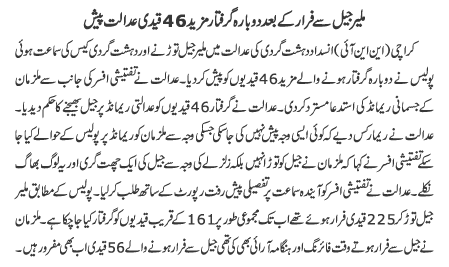 ملیر جیل سے فرار کے بعد دوبارہ گرفتار مزید 46 قیدی عدالت پیش
کراچی (این این آئی) انسداد دہشت گردی کی عدالت میں ملیر جیل توڑنے اور دہشت گردی کیس کی سماعت ہوئی
پولیس نے دوبارہ گرفتار ہونے والے مزید 46 قیدیوں کو پیش کر دیا۔ عدالت نے تفتیشی افسر کی جانب سے ملزمان
کے جسمانی ریمانڈ کی استدعا مسترد کر دی۔ عدالت نے گرفتار 46 قیدیوں کو عدالتی ریمانڈ پر جیل بھیجنے کا حکم دیدیا۔
عدالت نے ریمارکس دیے کہ کوئی ایسی وجہ پیش نہیں کی جا سکی جسکی وجہ سے ملزمان کو ریمانڈ پر پولیس کے حوالے کیا جا
سکے تفتیشی افسر نے کہا کہ ملزمان نے جیل کو توڑا نہیں بلکہ زلزلے کی وجہ سے جیل کی ایک چھت گری اور یہ لوگ بھاگ
نکلے۔ عدالت نے تفتیشی افسر کو آیندہ سماعت پر تفصیلی پیش رفت رپورٹ کے ساتھ طلب کر لیا۔ پولیس کے مطابق ملیر
جیل توڑ کر 225 قیدی فرار ہوئے تھے اب تک مجموعی طور پر 161 کے قریب قیدیوں کو گرفتار کیا جا چکا ہے۔ ملزمان
نے جیل سے فرار ہوتے وقت فائرنگ اور ہنگامہ آرائی بھی کی تھی جیل سے فرار ہونے والے 56 قیدی اب بھی مفرور ہیں۔